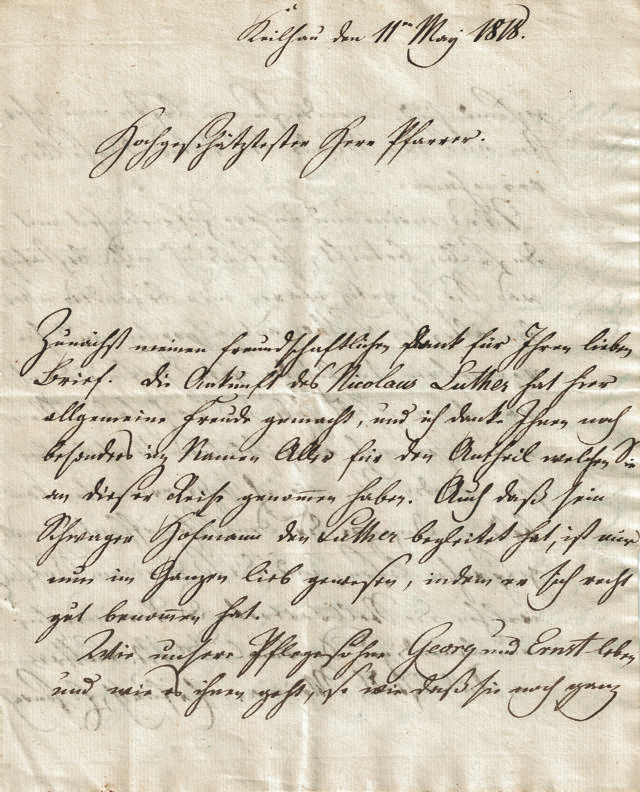 Keilhau den 11ten May 1818.
Hochgeschätztester Herr Pfarrer.
Zunächst meinen freundschaftlichen Dank für Ihren lieben
Brief. Die Ankunft des Nicolaus Luther hat hier
allgemeine Freude gemacht, und ich danke Ihnen noch
besonders im Namen Aller für den Antheil welchen Sie
an dieser Reise genommen haben. Auch daß sein
Schwager Hofmann den Luther begleitet hat, ist mir
nun im Ganzen lieb gewesen, indem er sich recht
gut benommen hat.
Wie unsere Pflegesöhne Georg und Ernst leben
und wie es ihnen geht, so wie daß sie noch ganz